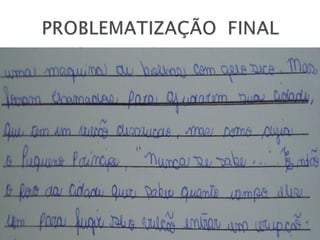 PROBLEMATIZAÇÃO FINAL
uma maquina de bolinha com gelo seco. Mas
foram chamados para ajudarem sua cidade,
que tem um vulcão desativado, mas como dizia
o Pequeno Principe, "Nunca se sabe...". E não
o povo da cidade quer saber quanto tempo eles
tem para fugir se o vulcão entrar em erupção.